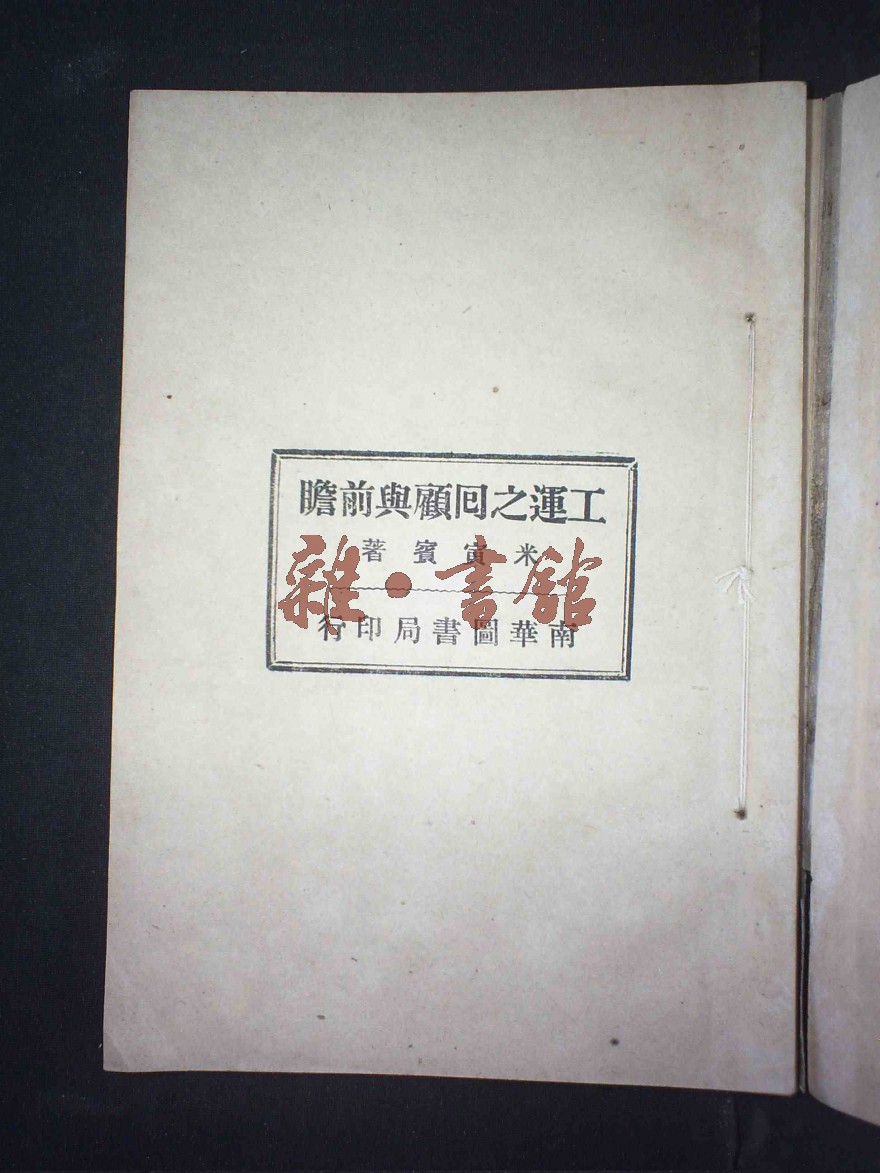 工運之回顧與前瞻
米寅賓著
南華圖書局印行
雜·書館